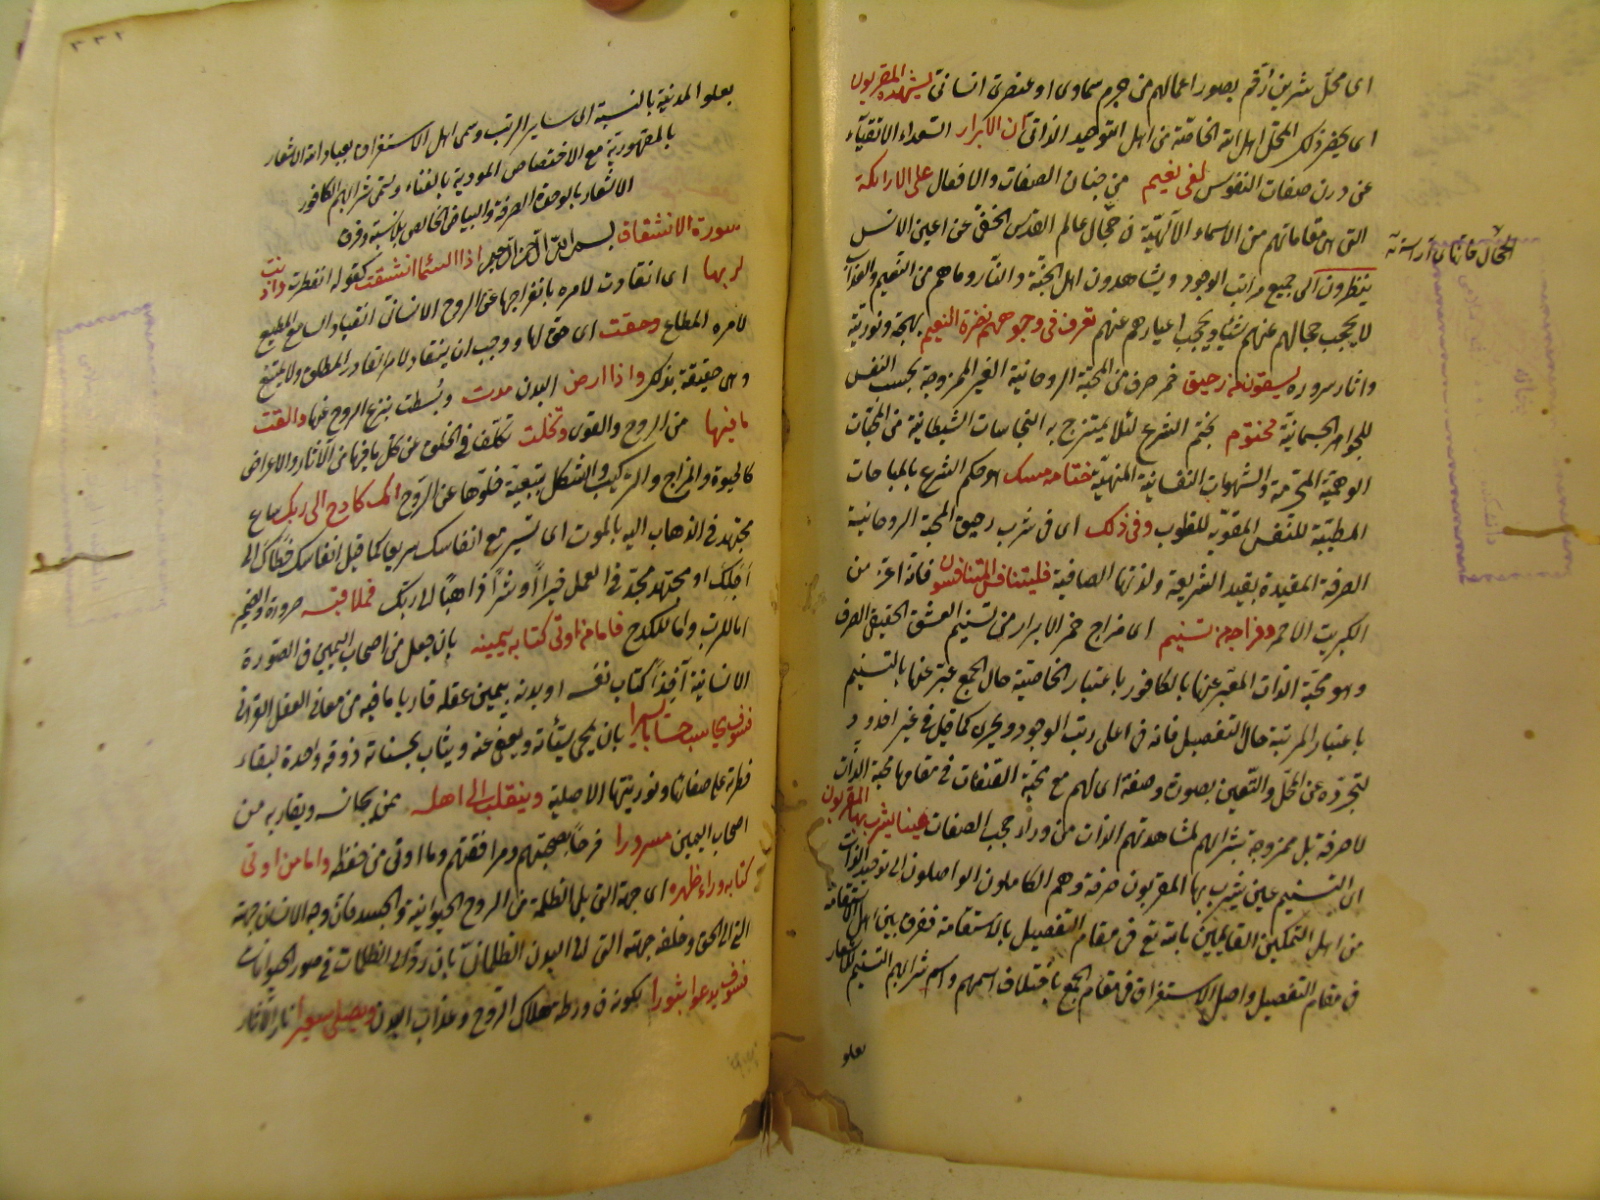 اى محل شريف رقم بصور اعمالهم من جرم سماوى او عنصرى انسانى يشهده المقربون
اى يحضر ذلك المحل اهل الله الخاصة من اهل التوحيد الذاتى ان الابرار السعداء الاتقياء
عن درن صفات النفوس لفى نعيم من جنان الصفات والافعال على الارائك
التى هى مقاماتهم من الاسماء الالهية فى حجال عالم القدس الخفى عن اعين الانس
ينظرون الى جميع مراتب الوجود ويشاهدون اهل الجنة والنار وما هم من النعيم والعذاب
لا يحجب حجالهم عنهم شيئا ويحجب اغيارهم عنهم تعرف فى وجوههم نضرة النعيم بهجة ونورية
واثار سروره يسقون من رحيق خمر صرف من المحبة الروحانية الغير الممزوجة بحب النفس
للجواهر الجسمانية مختوم بختم الشرع لئلا يمتزج به النجاسات الشيطانية من المحبات
الوهمية المحرمة والشهوات النفسانية المنهية ختامه مسك هو حكم الشرع بالمباحات
المطيبة للنفس المقوية للقلوب وفى ذلك اى فى شرب رحيق المحبة الروحانية
الصرفة المقيدة بقيد الشريعة ولذتها الصافية فليتنافس المتنافسون فانه اعز من
الكبريت الاحمر ومزاجه من تسنيم اى مزاج خمر الابرار من تسنيم العشق الحقيقى الصرف
وهو محبة الذات المعبر عنها بالكافور باعتبار الخاصية حال الجمع عبر عنها بالتسنيم
باعتبار المرتبة حال التفصيل فانه فى اعلى رتب الوجود ويجرى كما قيل فى غير اخدود
لتجرده عن المحل والتعين بصورة وصفة اى لهم مع محبة الصفات فى مقامها محبة الذات
لا صرفة بل ممزوجة بشرابهم لمشاهدتهم الذات من وراء حجب الصفات عينا يشرب بها المقربون
اى التسنيم عين يشرب بها المقربون صرفة وهم الكاملون الواصلون الى توحيد الذات
من اهل التمكين القائمين بالله تع فى مقام التفصيل بالاستقامة ففرق بين اهل الاستقامة
فى مقام التفصيل واهل الاستغراق فى مقام الجمع باختلاف اسمهم واسم شرابهم التسنيم للاشعار
بعلو
٣٣٢
بعلو المدنية بالنسبة الى ساير الرتب وسمى اهل الاستغراق بعباد الله الاشعار
بالمقهورية مع الاختصاص المودية بالفناء وسمى شرابهم الكافور
الاشعار بالوحدة الصرفة والبياض الخالص بلا نسبة وفرق
سورة الانشقاق بسم الله الرحمن الرحيم اذا السماء انشقت كقوله انفطرت واذنت
لربها اى انقادت لامره بانفراجها عن الروح الانسانى انقياد السامع المطيع
لامره المطاع وحقت اى حق لها ووجب ان ينقاد لامر القادر المطلق ولا يمتنع
وهى حقيقة بذلك واذا ارض البدن مدت وبسطت بنزع الروح عنها والقت
ما فيها من الروح والقوى وتخلت تكلفت فى الخلو عن كل ما فيها من الاثار والاعراض
كالحيوة والمزاج والتركيب والشكل بتبعية خلوها عن الروح انك كادح الى ربك ساع
مجتهد فى الذهاب اليه بالموت اى تسير مع انفاسك سريعا كما قيل انفاسك خطاك الى
اجلك او مجتهد مجد فى العمل خيرا او شرا ذاهبا الى ربك فملاقيه ضرورة والضمير
اما للرب واما للكدح فاما من اوتى كتابه بيمينه بان جعل من اصحاب اليمين فى الصورة
الانسانية آخذا كتاب نفسه او بدنه بيمين عقله قاريا ما فيه من معانى العقل القرانى
فسوف يحاسب حسابا يسيرا بان يمحى سيئاته ويعفى عنه ويثاب بحسناته دفعة واحدة لبقاء
فطرته على صفائها ونوريتها الاصلية وينقلب الى اهله ممن يجانسه ويقاربه من
اصحاب اليمين مسرورا فرحا بصحبتهم ومرافقتهم وما اوتى من حظه واما من اوتى
كتابه وراء ظهره اى جهة التى يلى الظلمة من الروح الحيوانية والجسد فان وجه الانسان جهة
التى الى الحق وخلفه جهته التى الى البدن الظلمانى بان رد الى الظلمات فى صور الحيوانات
فسوف يدعوا ثبورا بكونه فى ورطة هلاك الروح وعذاب البدن ويصلى سعيرا نار الاثار